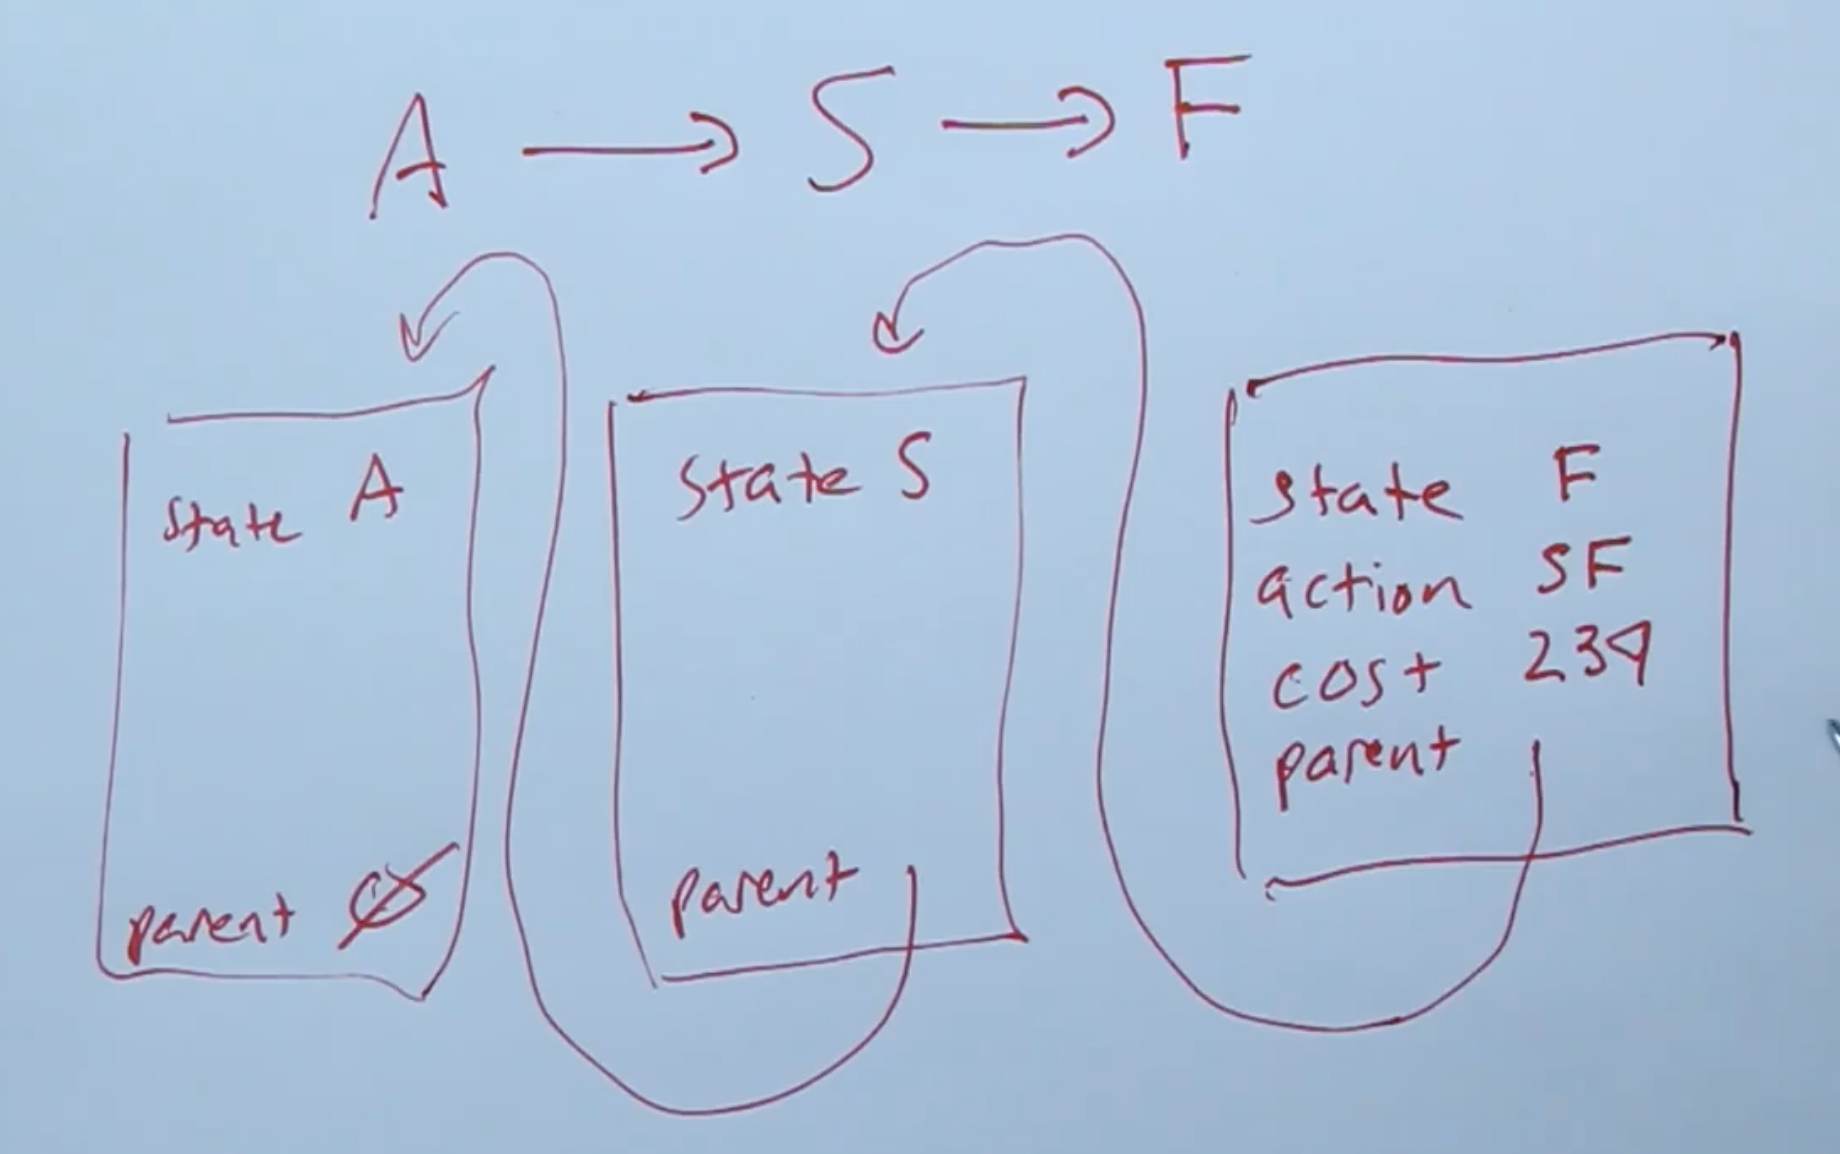 A → S → F
State A
parent Ø
State S
parent
state F
action SF
cost 239
parent